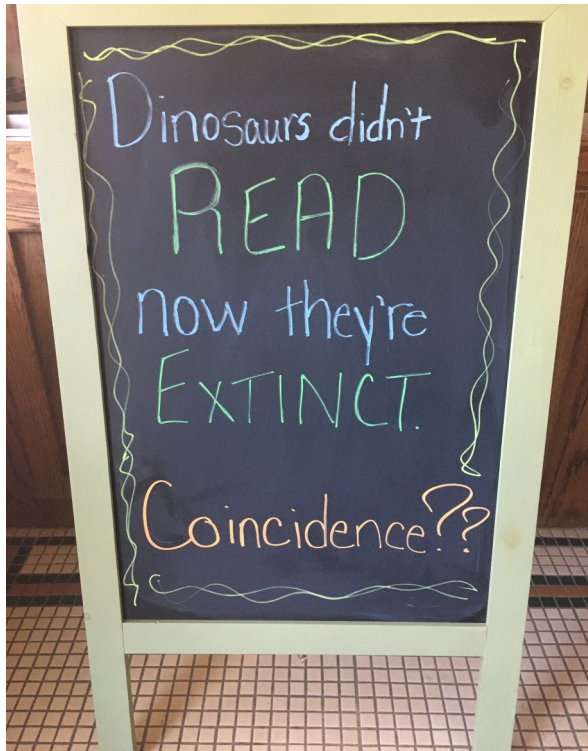 Dinosaurs didn't
READ
now they're
EXTINCT.
Coincidence??